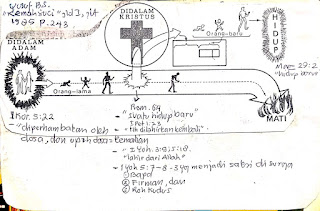 Yusuf B.S.
"Kembali Suci" jld I, jlt
1985 P.243
DIDALAM
ADAM
DIDALAM
KRISTUS
Orang-baru
HIDUP
Orang-lama
MATI
"hidup baru"
1 Kor. 5:22
- "diperhambakan oleh
dosa, dan upah dan kematian
Rom. 6:4
- "suatu hidup baru"
1 Pet 1:23
- "tlh dilahirkan kembali"
- 1 Yoh. 3:9; 5:18.
"lahir dari Allah"
- 1 Yoh 5:7-8 - 3 yg menjadi saksi di surga
① Bapa
② Firman, dan
③ Roh Kudus